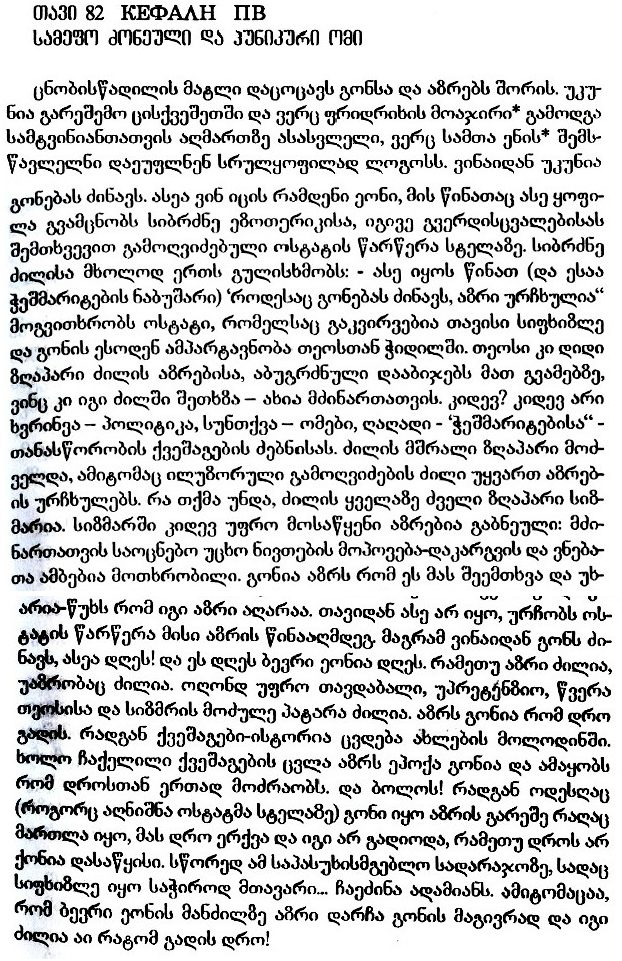 თავი 82 ΚΕΦΑΛΗ ΠΒ
სამეფო ძონეული და პუნიკური ომი
ცნობისწადილის მატლი დაცოცავს გონსა და აზრებს შორის. უკუ-
ნია გარეშემო ცისქვეშეთში და ვერც ფრიდრიხის მოაჯირი* გამოდგა
სამტვინიანთათვის აღმართზე ასასვლელი, ვერც სამთა ენის* შემს-
წავლელნი დაეუფლნენ სრულყოფილად ლოგოსს. ვინაიდან უკუნია
გონებას ძინავს. ასეა ვინ იცის რამდენი ეონი, მის წინათაც ასე ყოფი-
ლა გვამცნობს სიბრძნე ეზოთერიკისა, იგივე გვერდისცვალებისას
შემთხვევით გამოღვიძებული ოსტატის წარწერა სტელაზე. სიბრძნე
ძილისა მხოლოდ ერთს გულისხმობს: - ასე იყოს წინათ (და ესაა
ჭეშმარიტების ნაბუშარი) ‘როდესაც გონებას ძინავს, აზრი ურჩხულია“
მოგვითხრობს ოსტატი, რომელსაც გაკვირვებია თავისი სიფხიზლე
და გონის ესოდენ ამპარტავნობა თეოსთან ჭიდილში. თეოსი კი დიდი
ზღაპარი ძილის აზრებისა, აბუგრძნული დააბიჯებს მათ გვამებზე,
ვინც კი იგი ძილში შეთხზა – ახია მძინართათვის. კიდევ? კიდევ არი
ხვრინვა – პოლიტიკა, სუნთქვა – ომები, ღაღადი - ‘ჭეშმარიტებისა“ -
თანასწორობის ქვეშაგების ძებნისას. ძილის მშრალი ზღაპარი მოძ-
ველდა, ამიტომაც ილუზორული გამოღვიძების ძილი უყვართ აზრებ-
ის ურჩხულებს. რა თქმა უნდა, ძილის ყველაზე ძველი ზღაპარი სიზ-
მარია. სიზმარში კიდევ უფრო მოსაწყენი აზრებია გაბნეული: მძი-
ნართათვის საოცნებო უცხო ნივთების მოპოვება-დაკარგვის და ვნება-
თა ამბებია მოთხრობილი. გონია აზრს რომ ეს მას შეემთხვა და უხ-
არია-წუხს რომ იგი აზრი აღარაა. თავიდან ასე არ იყო, ურჩობს ოს-
ტატის წარწერა მისი აზრის წინააღმდეგ. მაგრამ ვინაიდან გონს ძი-
ნავს, ასეა დღეს! და ეს დღეს ბევრი ეონია დღეს. რამეთუ აზრი ძილია,
უაზრობაც ძილია. ოღონდ უფრო თავდაბალი, უპრეტენზიო, წვერა
თეოსისა და სიზმრის მოძულე პატარა ძილია. აზრს გონია რომ დრო
გადის. რადგან ქვეშაგები-ისტორია ცვდება ახლების მოლოდინში.
ხოლო ჩაქელილი ქვეშაგების ცვლა აზრს ეპოქა გონია და ამაყობს
რომ დროსთან ერთად მოძრაობს. და ბოლოს! რადგან ოდესღაც
(როგორც აღნიშნა ოსტატმა სტელაზე) გონი იყო აზრის გარეშე რაღაც
მართლა იყო, მას დრო ერქვა და იგი არ გადიოდა, რამეთუ დროს არ
ქონია დასაწყისი. სწორედ ამ საპასუხისმგებლო სადარაჯოზე, სადაც
სიფხიზლე იყო საჭიროდ მთავარი... ჩაეძინა ადამიანს. ამიტომაცაა,
რომ ბევრი ეონის მანძილზე აზრი დარჩა გონის მაგივრად და იგი
ძილია აი რატომ გადის დრო!